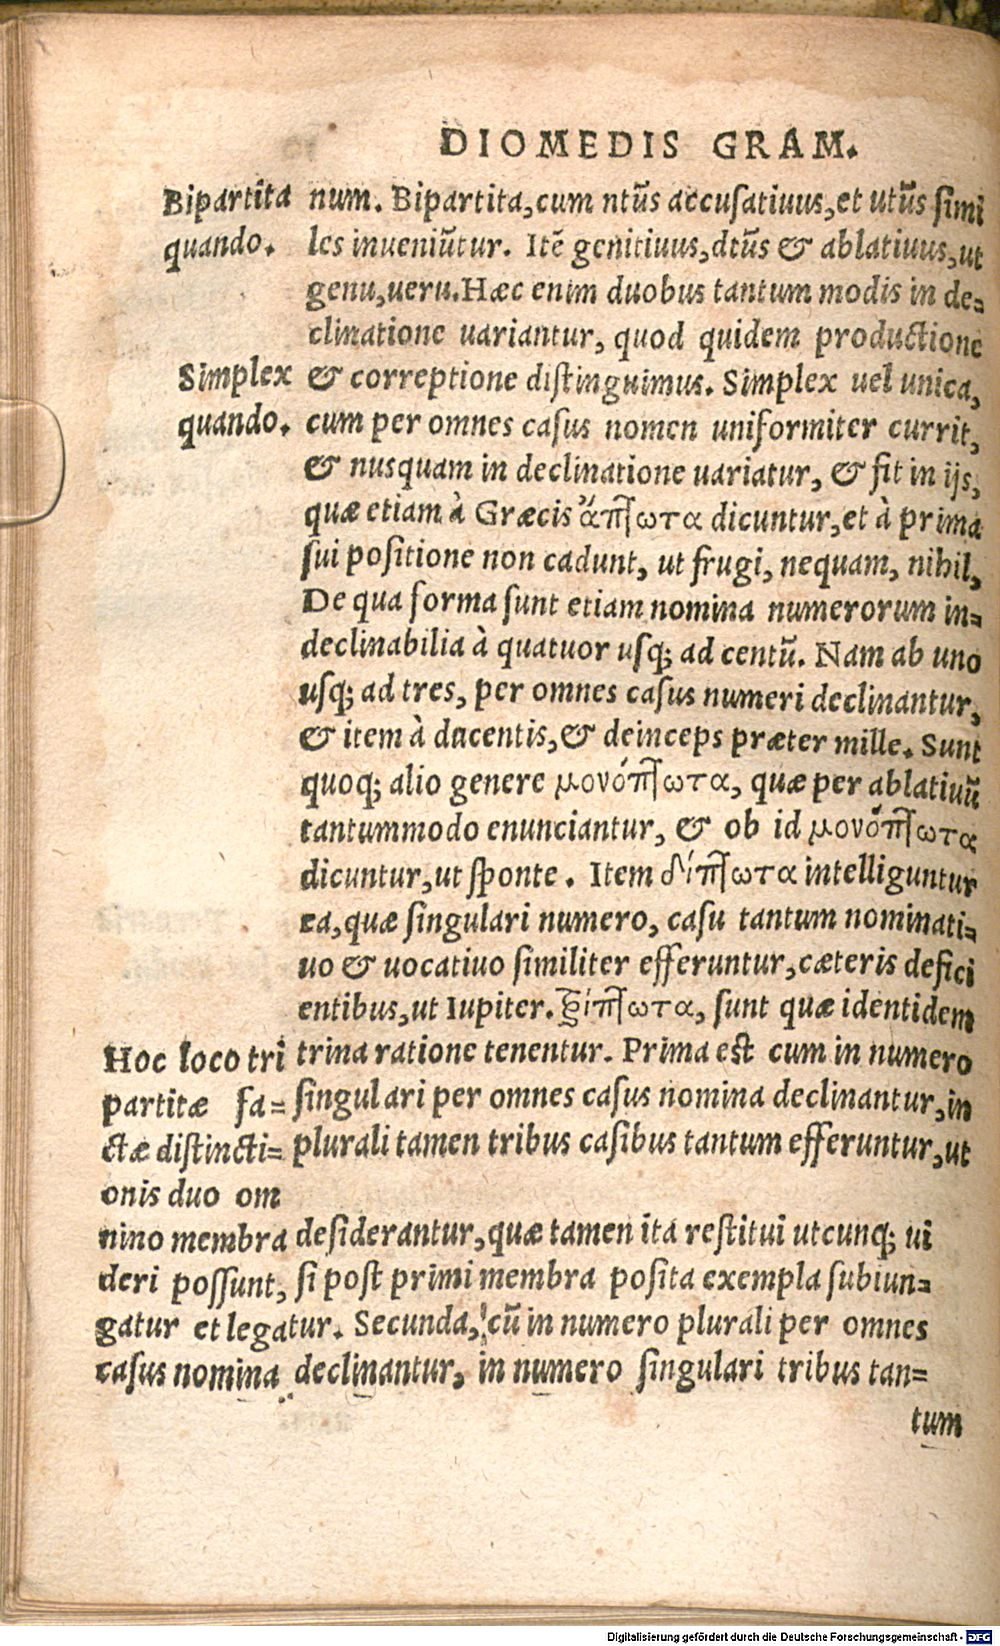 DIOMEDIS GRAM.
Bipartita
quando.
num. Bipartita,cum ntũs accusatiuus,et utũs simi
les inueniũtur. Itē genitiuus,dtũs & ablatiuus,ut
genu,ueru.Hæc enim duobus tantum modis in de-
clinatione uariantur, quod quidem productione
Simplex
quando.
& correptione distinguimus. Simplex uel unica,
cum per omnes casus nomen uniformiter currit,
& nusquam in declinatione uariatur, & fit in ijs,
quæ etiam à Græcis ἄπτωτα dicuntur,et à prima
sui positione non cadunt, ut frugi, nequam, nihil,
De qua forma sunt etiam nomina numerorum in-
declinabilia à quatuor usq; ad centũ. Nam ab uno
usq; ad tres, per omnes casus numeri declinantur,
& item à ducentis,& deinceps præter mille. Sunt
quoq; alio genere μονόπτωτα, quæ per ablatiuũ
tantummodo enunciantur, & ob id μονόπτωτα
dicuntur,ut sponte. Item δίπτωτα intelliguntur
ea,quæ singulari numero, casu tantum nominati-
uo & uocatiuo similiter efferuntur,cæteris defici
entibus,ut Iupiter. τρίπτωτα, sunt quæ identidem
trina ratione tenentur. Prima est cum in numero
singulari per omnes casus nomina declinantur,in
plurali tamen tribus casibus tantum efferuntur,ut
Hoc loco tri
partitæ fa-
ctæ distincti-
onis duo om
nino membra desiderantur,quæ tamen ita restitui utcunq; ui
deri possunt, si post primi membra posita exempla subiun-
gatur et legatur. Secunda, cũ in numero plurali per omnes
casus nomina declinantur, in numero singulari tribus tan-
tum
Digitalisierung gefördert durch die Deutsche Forschungsgemeinschaft - DFG